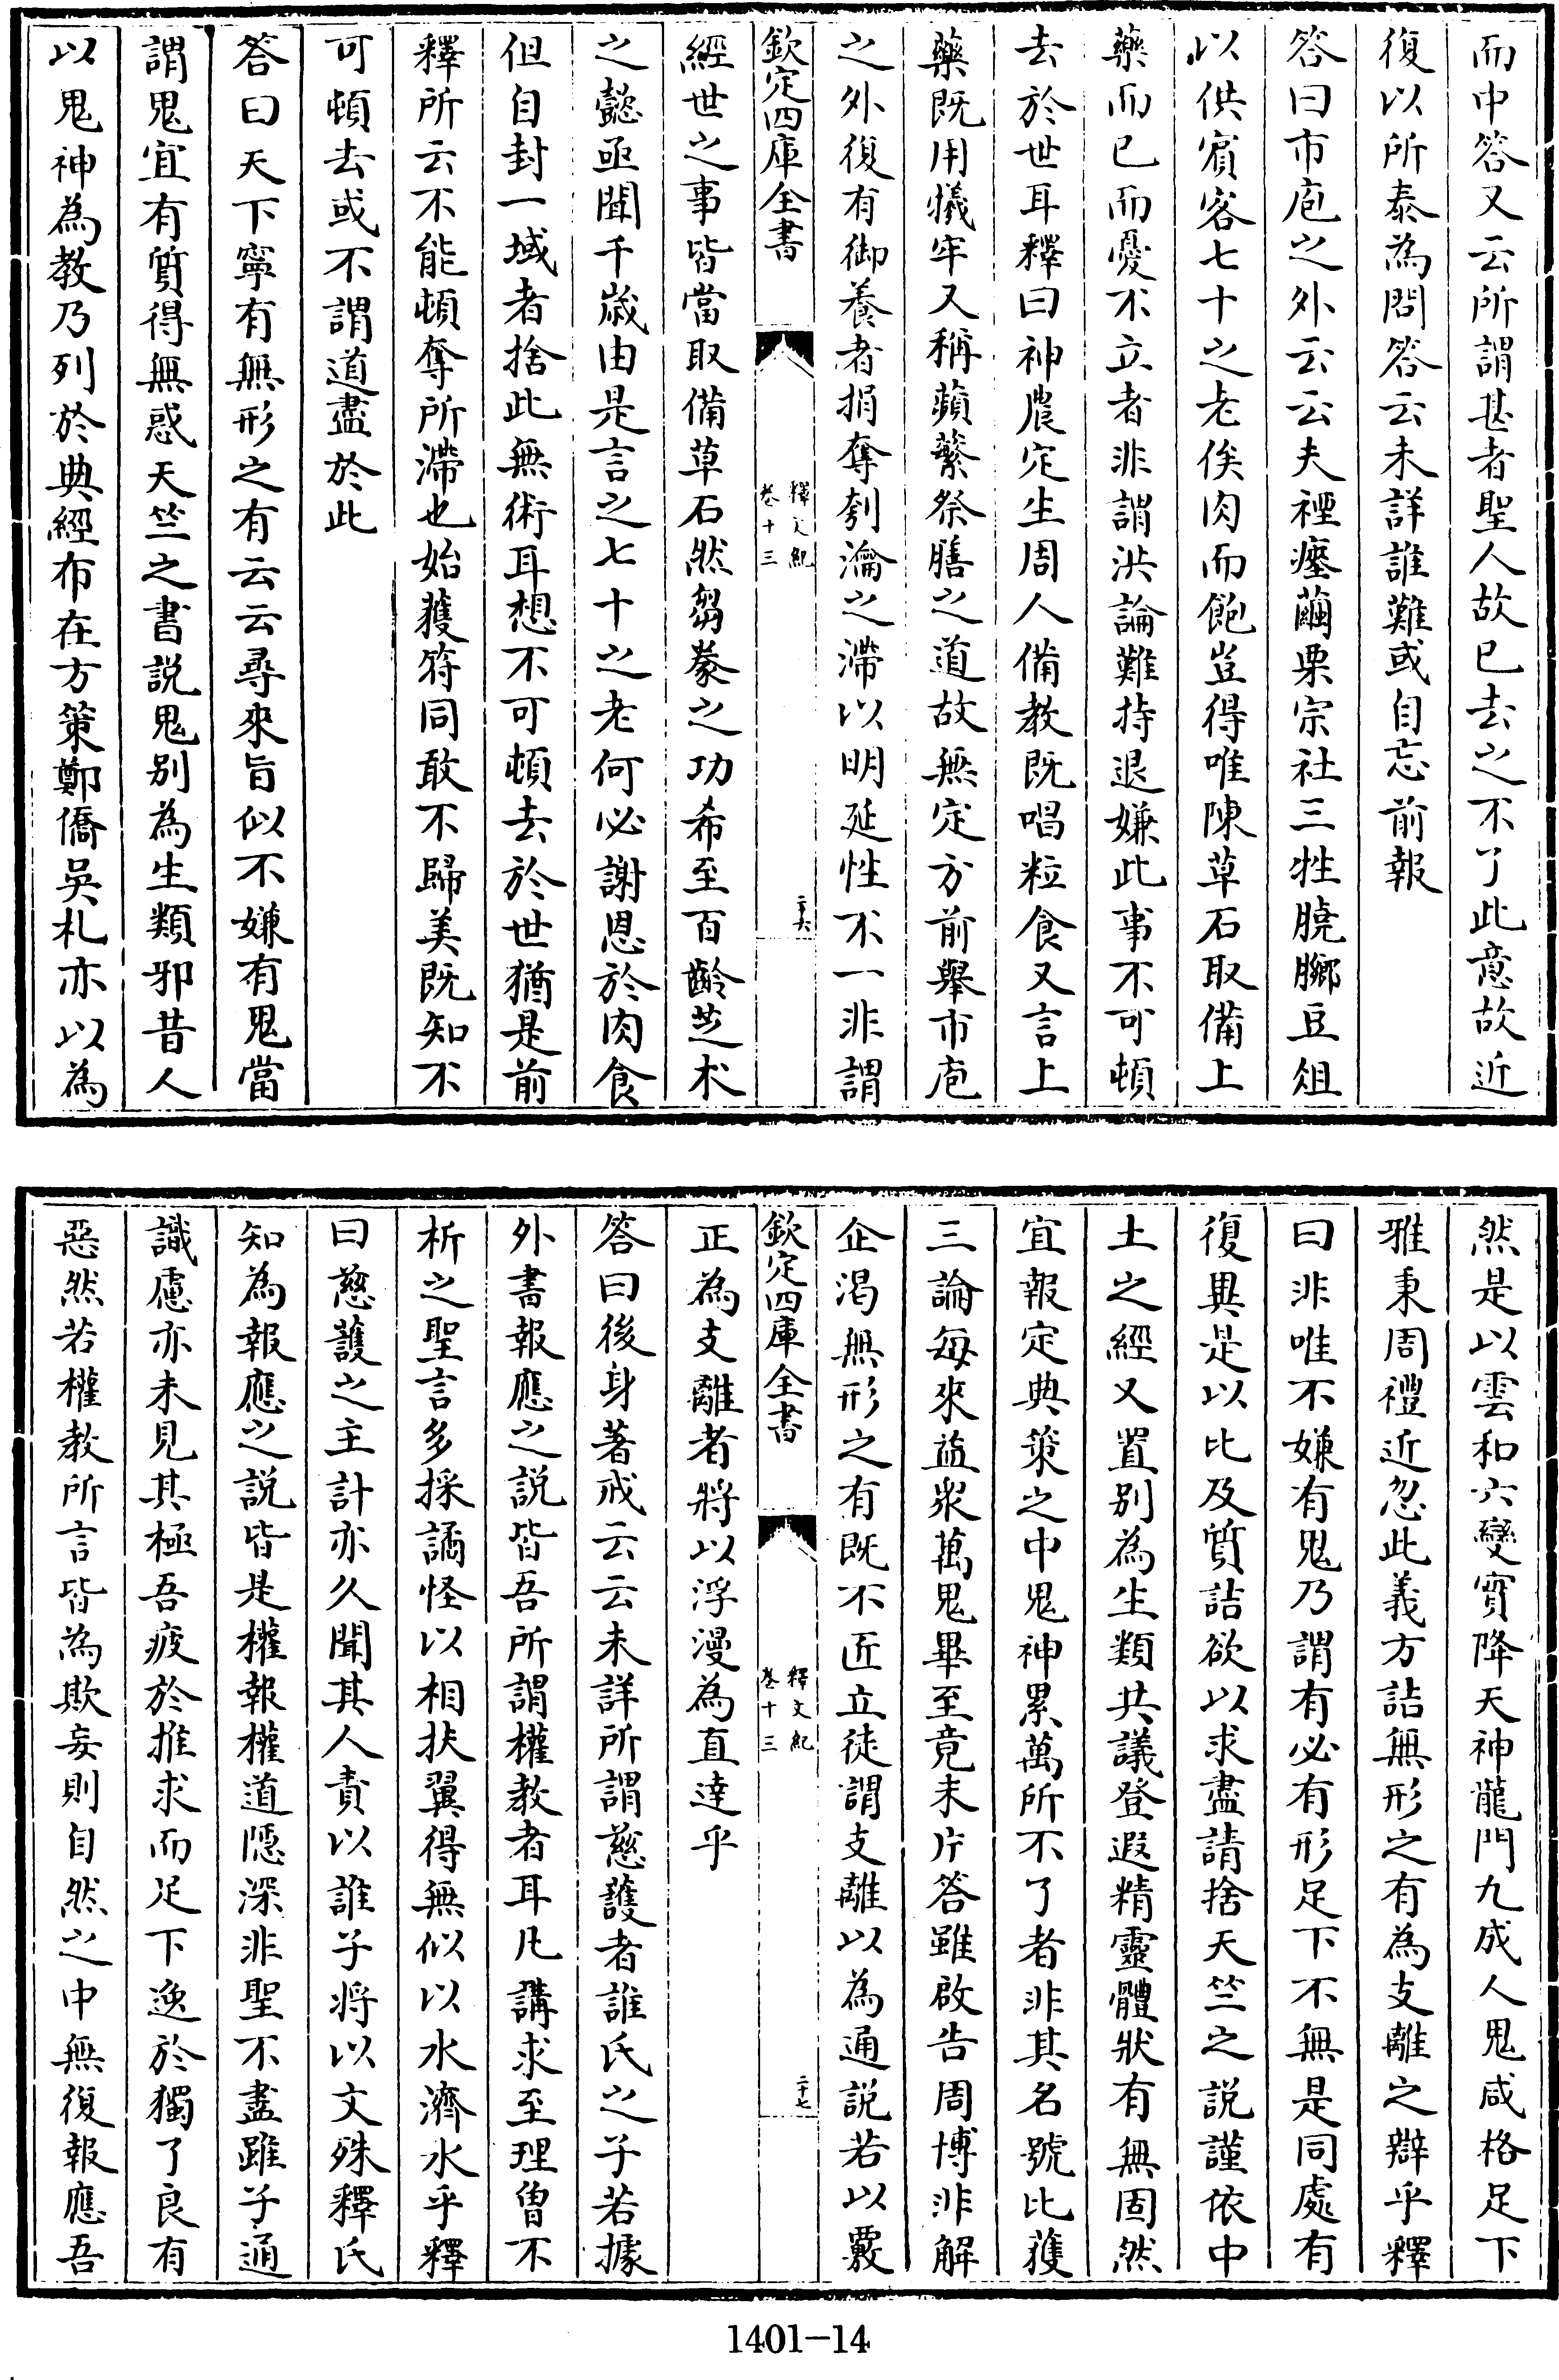 而中答又云所謂甚者聖人故已去之不了此意故近
復以所泰為問答云未詳誰難或自忘前報
答曰市庖之外云云夫禋瘞繭栗宗社三牲膮膷豆俎
以供賓客七十之老俟肉而飽豈得唯陳草石取備上
藥而已而憂不立者非謂洪論難持退嫌此事不可頓
去於世耳釋曰神農定生周人備教既唱粒食又言上
藥既用犧牢又稱蘋蘩祭膳之道故無定方前舉市庖
之外復有御養者捐奪刳瀹之滯以明延性不一非謂
欽定四庫全書
釋文紀
卷十三
二十六
經世之事皆當取備草石然芻豢之功希至百齡芝朮
之懿亟聞千歲由是言之七十之老何必謝恩於肉食
但自封一域者捨此無術耳想不可頓去於世猶是前
釋所云不能頓奪所滯也始獲符同敢不歸美既知不
可頓去或不謂道盡於此
答曰天下寧有無形之有云云尋來旨似不嫌有鬼當
謂鬼宜有質得無惑天竺之書說鬼別為生類邪昔人
以鬼神為教乃列於典經布在方策鄭僑吳札亦以為
然是以雲和六變實降天神龍門九成人鬼咸格足下
雅秉周禮近忽此義方詰無形之有為支離之辯乎釋
曰非唯不嫌有鬼乃謂有必有形足下不無是同處有
復異是以比及質詰欲以求盡請捨天竺之說謹依中
土之經又置別為生類共議登遐精靈體狀有無固然
宜報定典策之中鬼神累萬所不了者非其名號比獲
三論每來益眾萬鬼畢至竟未片答雖啟告周博非解
企渴無形之有既不匠立徒謂支離以為通說若以覈
欽定四庫全書
釋文紀
卷十三
二十七
正為支離者將以浮漫為直達乎
答曰後身著戒云云未詳所謂慈護者誰氏之子若據
外書報應之說皆吾所謂權教者耳凡講求至理曾不
析之聖言多採譎怪以相扶翼得無似以水濟水乎釋
曰慈護之主計亦久聞其人責以誰子將以文殊釋氏
知為報應之說皆是權報權道隱深非聖不盡雖子通
識慮亦未見其極吾疲於推求而足下逸於獨了良有
惡然若權教所言皆為欺妄則自然之中無復報應吾
1401-14